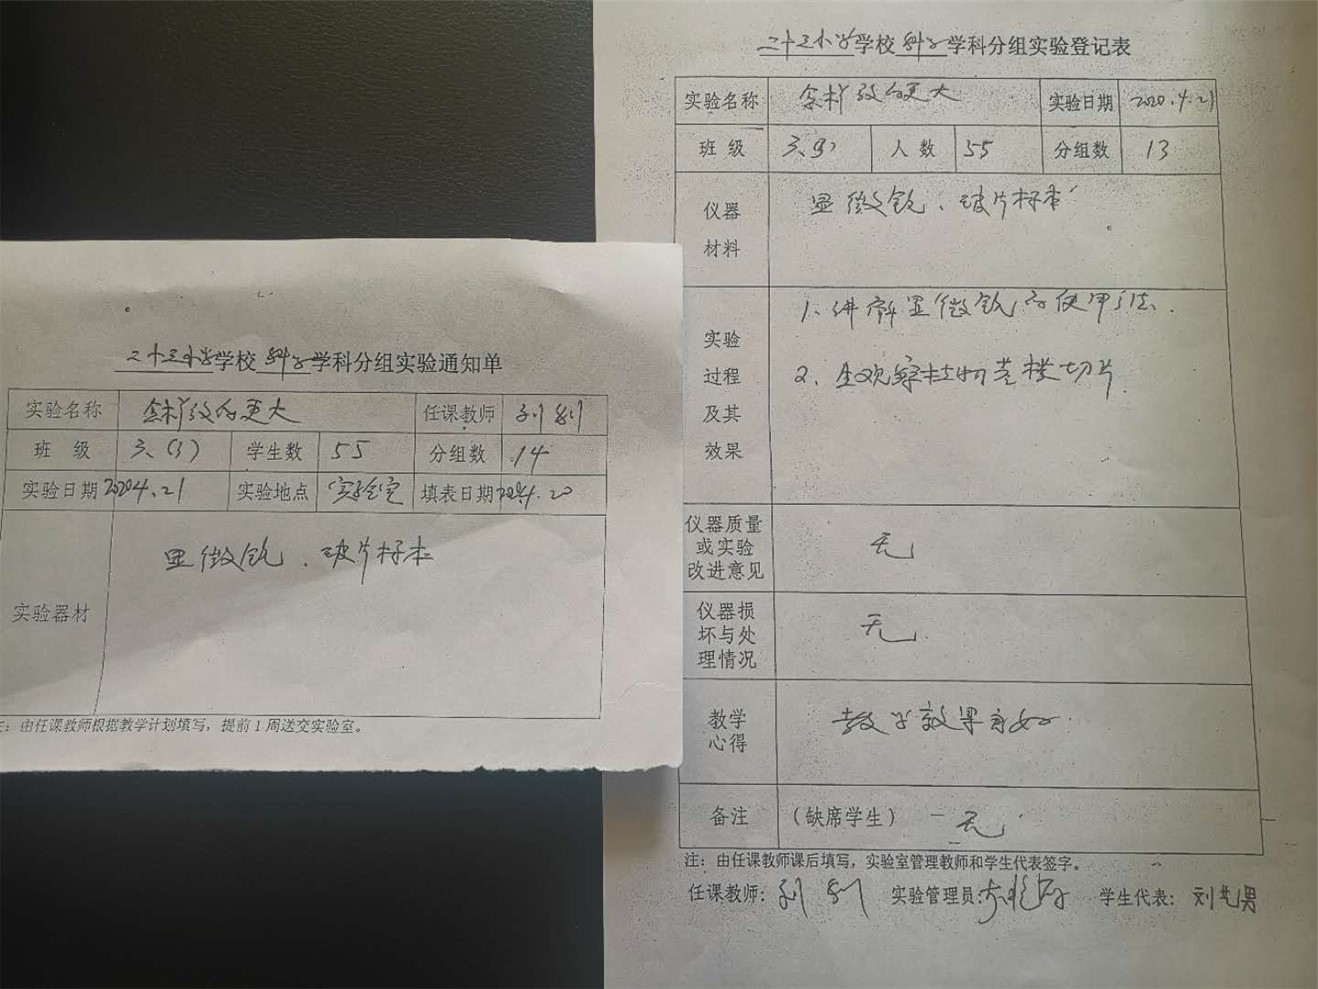 二十三小学学校 科学学科分组实验通知单
实验名称 放的更大 任课教师 刘
班 级 三、(3) 学生数 55 分组数 14
实验日期 4.21 实验地点 实验室 填表日期 20
实验器材 显微镜、玻片标本
注：由任课教师根据教学计划填写，提前1周送交实验室。
二十三小学学校 科学学科分组实验登记表
实验名称 放的更大 实验日期 2020.4.21
班 级 三、 人 数 55 分组数 13
仪器材料 显微镜、玻片标本
实验过程及其效果 1、讲解显微镜的使用方法.
2、生观察植物茎横切片
仪器质量或实验改进意见 无
仪器损坏与处理情况 无
教学心得 教学效果良好
备注 （缺席学生） 无
注：由任课教师课后填写，实验室管理教师和学生代表签字。
任课教师： 刘 实验管理员： 学生代表： 刘 男